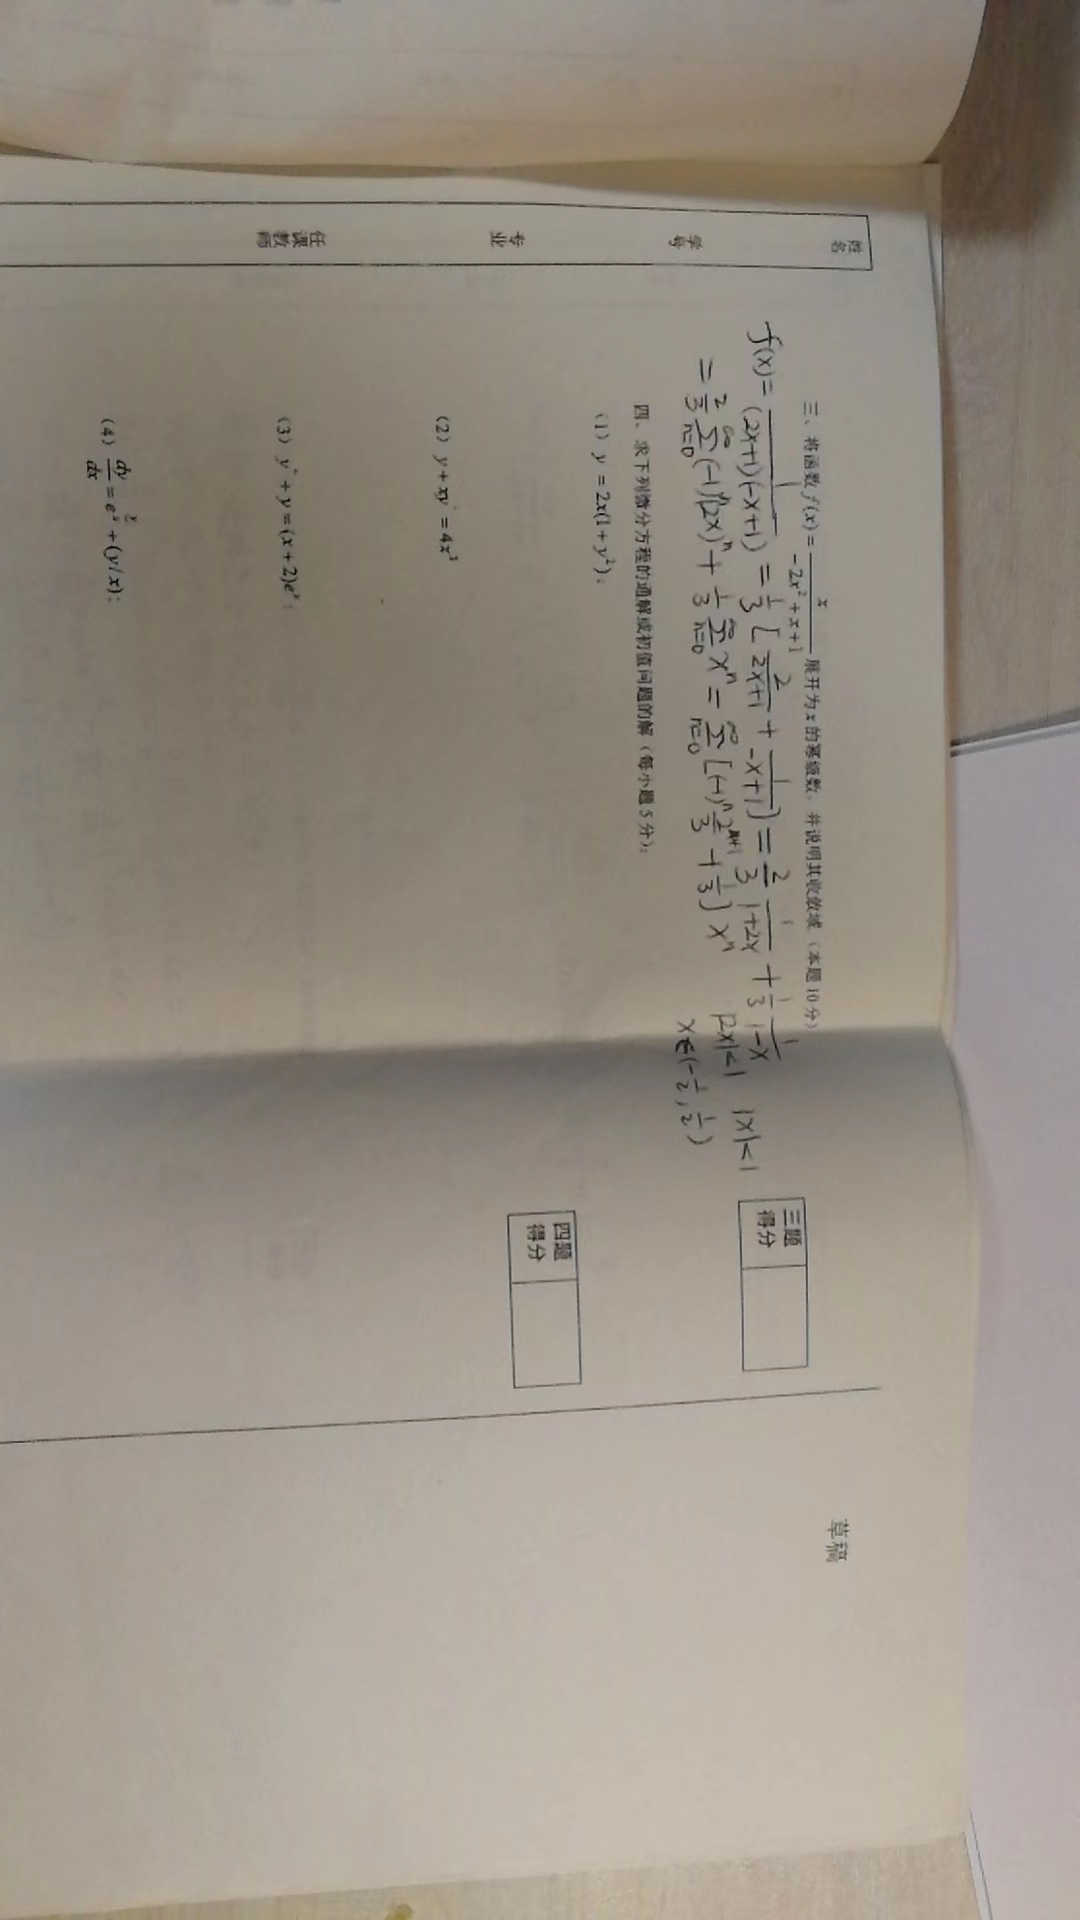 姓名
学号
专业
任课教师
三、将函数 f(x) = x/(-2x²+x+1) 展开为x的幂级数，并说明其收敛域.（本题10分）
f(x) = 1/((2x+1)(-x+1)) = 1/3 [2/(2x+1) + 1/(-x+1)] = 2/3 1/(1+2x) + 1/3 1/(1-x)
= 2/3 ∑_{n=0}^∞ (-1)^n (2x)^n + 1/3 ∑_{n=0}^∞ x^n = ∑_{n=0}^∞ [(-1)^n 2^{n+1}/3 + 1/3] x^n |2x|<1 |x|<1
x∈(-1/2, 1/2)
三题
得分
四、求下列微分方程的通解或初值问题的解（每小题5分）:
(1) y = 2x(1+y²);
四题
得分
(2) y+xy' = 4x³
(3) y''+y=(x+2)eˣ;
(4) dy/dx = e^{y/x} + (y/x);
草稿